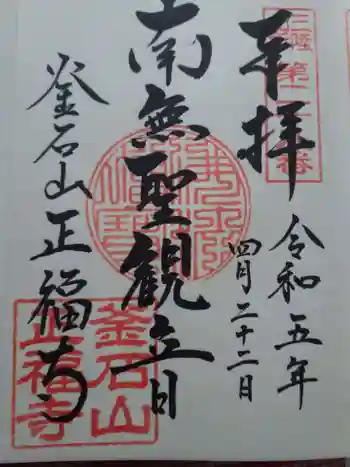 奉拝
三陸 第二
番
令和五年
四月二十二日
南無聖観立日
釜石山正福寺
釜石山
正福寺